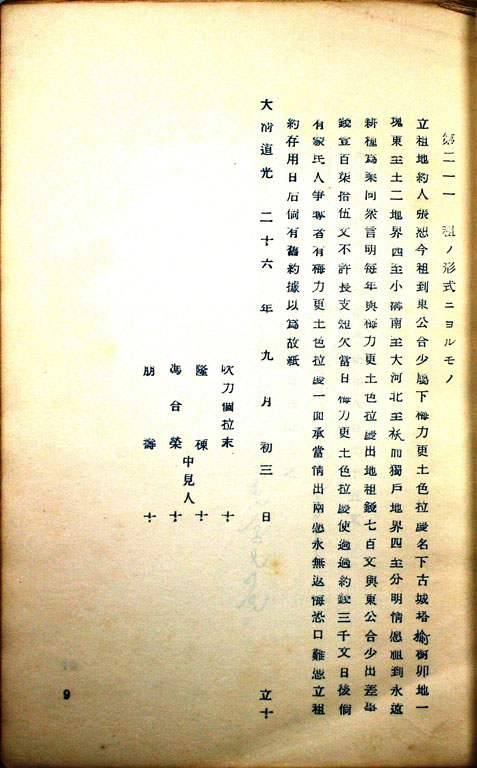 第二一一 租ノ形式ニヨルモノ
立租地約人張恕今租到東公合少屬下悔力更土色拉慶名下古城塔拾樹卯地一
塊東至土二地界西至小溝南至大河北至 獨戶地界四至分明情愿租到永遠
耕種為業同衆言明每年與悔力更土色拉慶出地租錢七百文與東公合少出差
錢壹百柒拾伍文不許長支短欠當日悔力更土色拉慶使過過約錢三千文日後倘
有蒙民人爭奪者有悔力更土色拉慶一面承當情出兩愿永無返悔恐口難憑立租
約存用日后倘有舊約據以為故紙
大淸道光 二十六 年 九 月 初三 日 立十
吹力個拉末 十
隆棟 十
中見人
馮合榮 十
朋壽 十
9